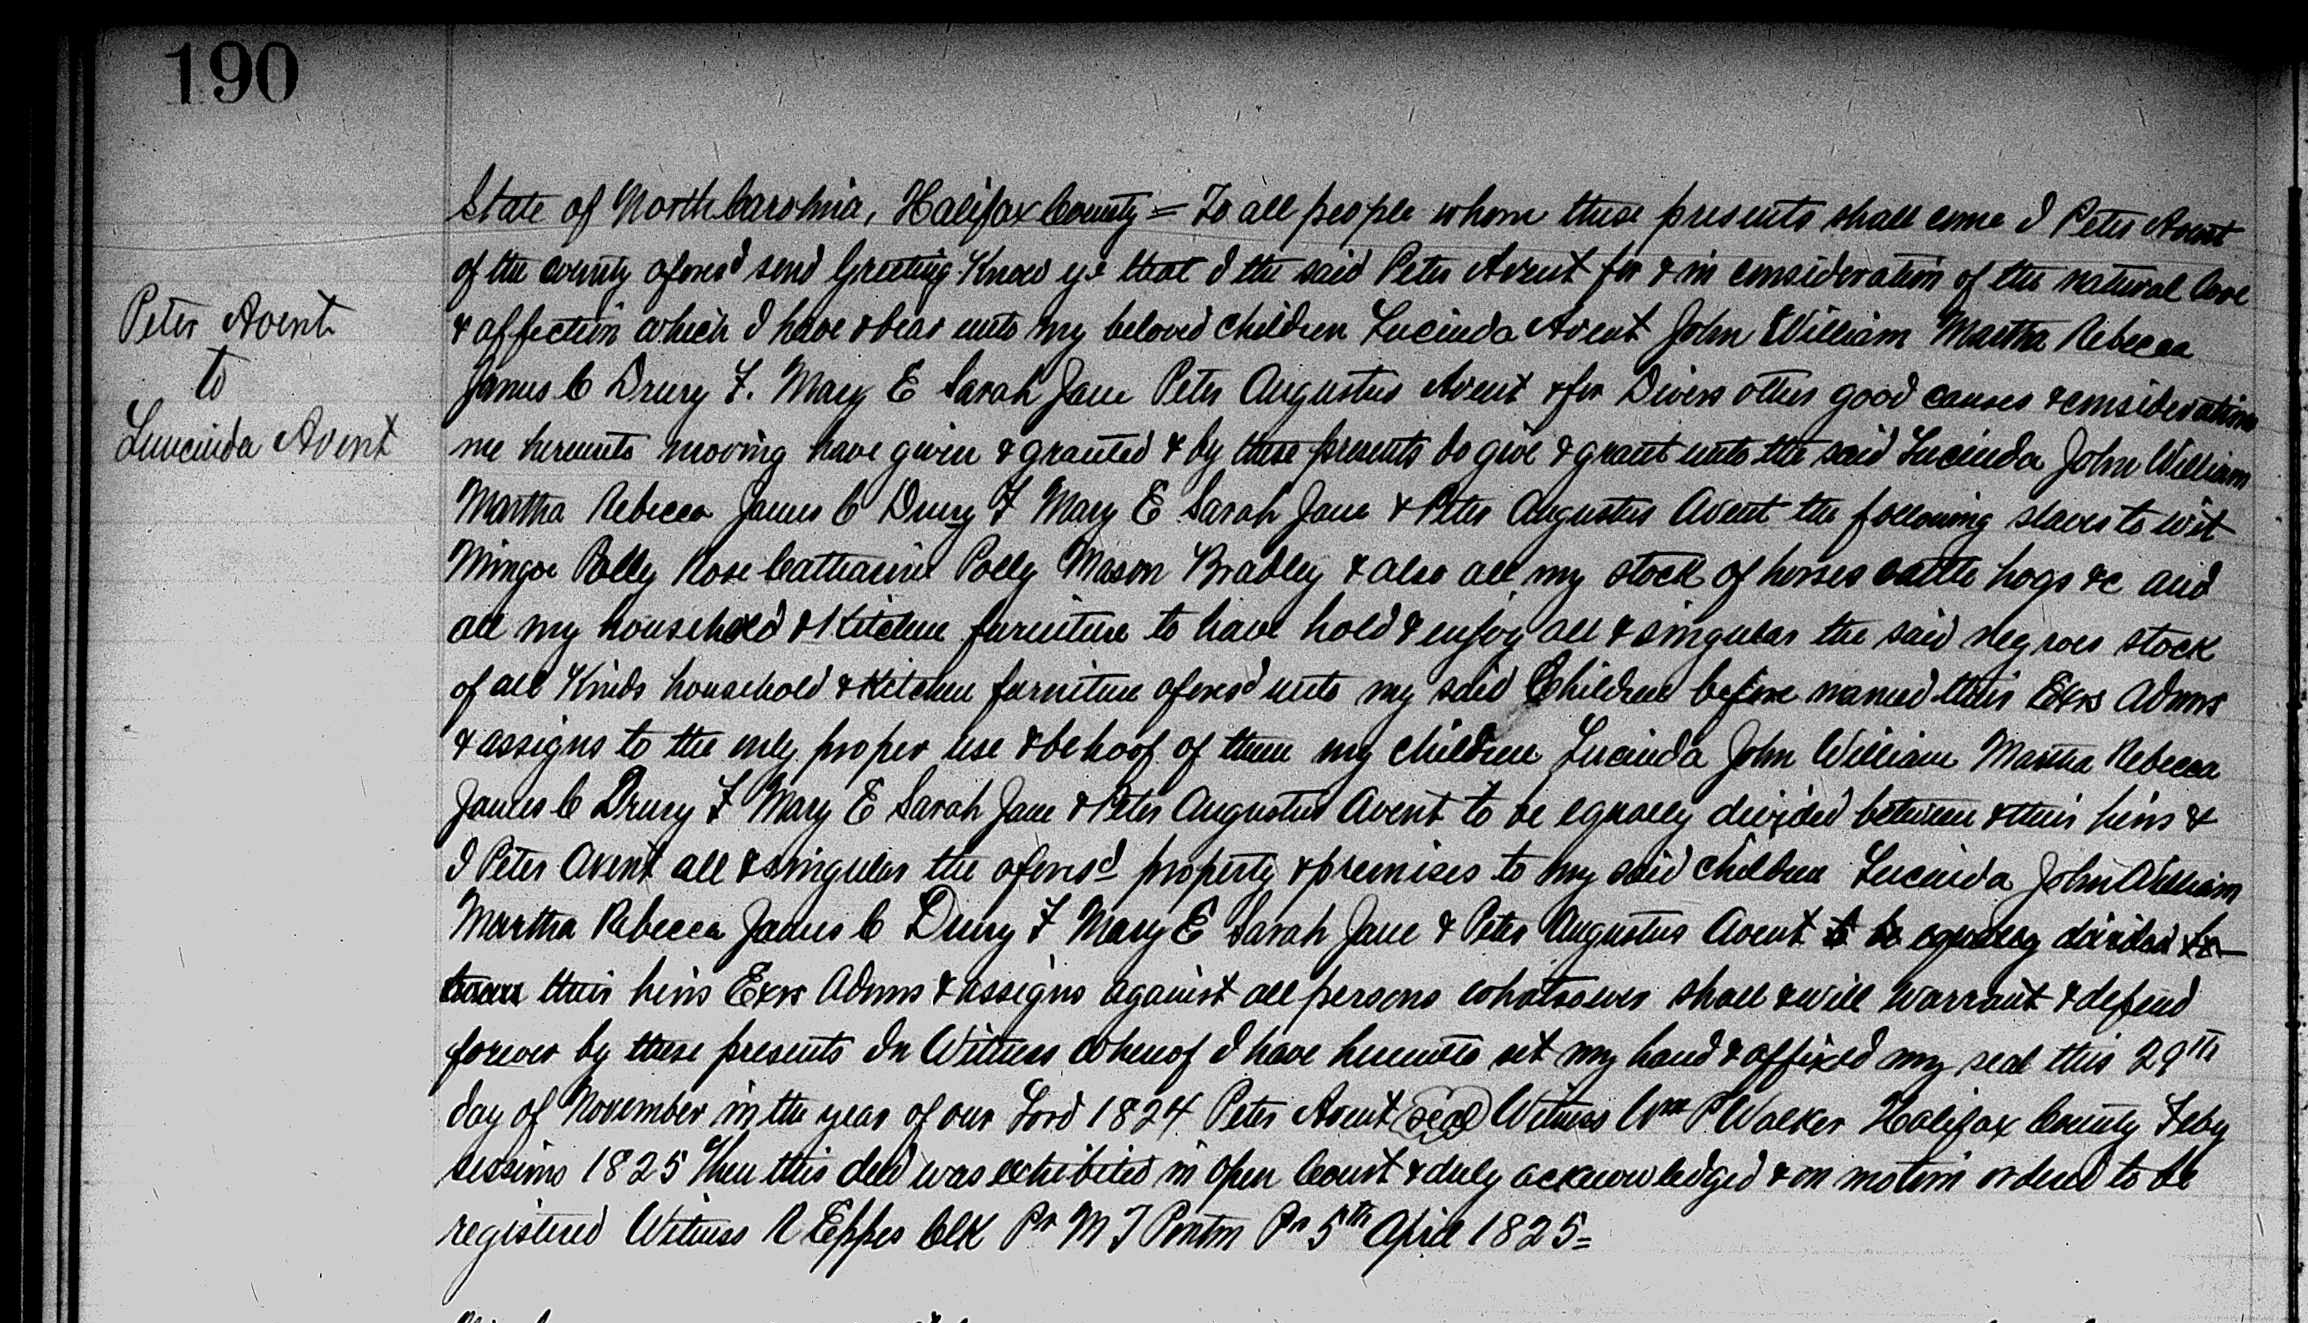 190
Peter Avent
to
Luucinda Avent
State of North Carolina, Halifax County = To all people whom these presents shall come I Peter Avent
of the county afores'd send Greeting Know ye that I the said Peter Avent for & in consideration of the natural love
& affection which I have & bear unto my beloved children Lucinda Avent John William Martha Rebecca
James C Drury F. Mary E Sarah Jane Peter Augustus Avent & for Divers other good causes & considerations
me hereunto moving have given & granted & by these presents do give & grant unto the said Lucinda John William
Martha Rebecca James C Drury F Mary E Sarah Jane & Peter Augustus Avent the following slaves to wit
Mingoe Polly Rose Catharine Polly Mason Bradley & also all my stock of horses cattle hogs &c and
all my household & Kitchen furniture to have hold & enjoy all & singular the said negroes stock
of all Kinds household & Kitchen furniture afores'd unto my said Children before named their Exrs Admrs
& assigns to the only proper use & behoof of them my children Lucinda John William Martha Rebecca
James C Drury F Mary E Sarah Jane & Peter Augustus Avent to be equally divided between & their heirs &
I Peter Avent all & singular the afores'd property & premises to my said children Lucinda John William
Martha Rebecca James C Drury F Mary E Sarah Jane & Peter Augustus Avent to be equally divided be-
tween their heirs Exrs Admrs & assigns against all persons whatsoever shall & will warrant & defend
forever by these presents In Witness whereof I have hereunto set my hand & affixed my seal this 29th
day of November in the year of our Lord 1824 Peter Avent seal Witness Wm P Walker Halifax County Feby
sessions 1825 Then this deed was exhibited in Open Court & duly acknowledged & on motion ordered to be
registered Witness R Eppes Clk Pr M T Ponton Pr 5th April 1825=